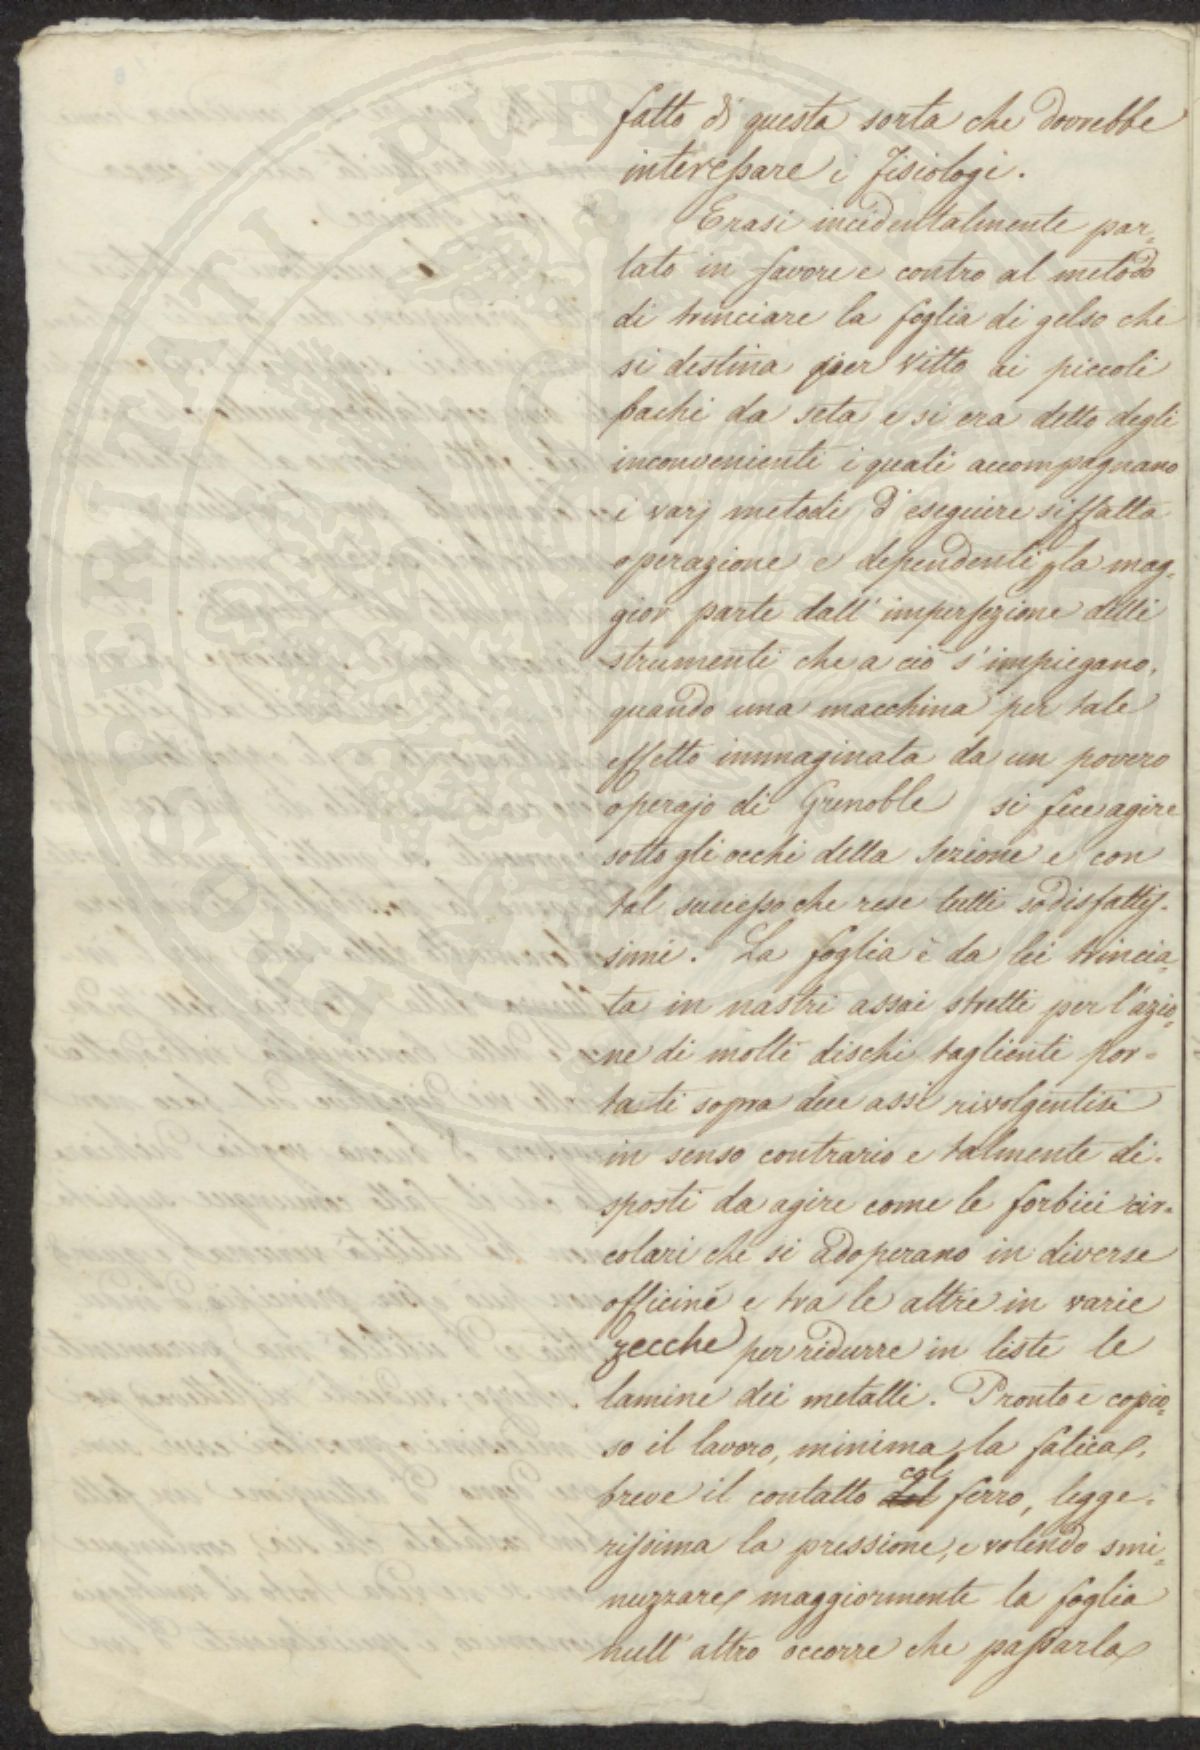 fatto di questa sorta che dovrebbe
interessare i fisiologi.
Erasi incidentalmente par-
lato in favore e contro al metodo
di trinciare la foglia di gelso che
si destina per vitto ai piccoli
bachi da seta e si era detto degli
inconvenienti i quali accompagnano
i varj metodi d'eseguire siffatta
operazione e dependenti la mag-
gior parte dall'imperfezione delli
strumenti che a ciò s'impiegano,
quando una macchina per tale
effetto immaginata da un povero
operajo di Grenoble si fece agire
sotto gli occhi della Sezione e con
tal successo che rese tutti sodisfattis-
simi. La foglia è da lei trincia-
ta in nastri assai stretti per l'azio-
ne di molti dischi taglienti por-
tati sopra due assi rivolgentisi
in senso contrario e talmente di-
sposti da agire come le forbici cir-
colari che si adoperano in diverse
officine e tra le altre in varie
zecche per ridurre in liste le
lamine dei metalli. Pronto e copio-
so il lavoro, minima la fatica,
breve il contatto del col ferro, legge-
rissima la pressione, e volendo smi-
nuzzare maggiormente la foglia
null'altro occorre che passarla
OSPERITATI PUBLICÆ